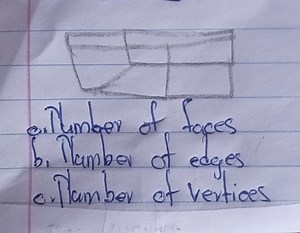 a. Number of faces
b. Number of edges
c. Number of vertices